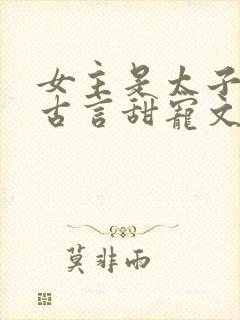 女主是太子
古言甜寵文
莫非雨